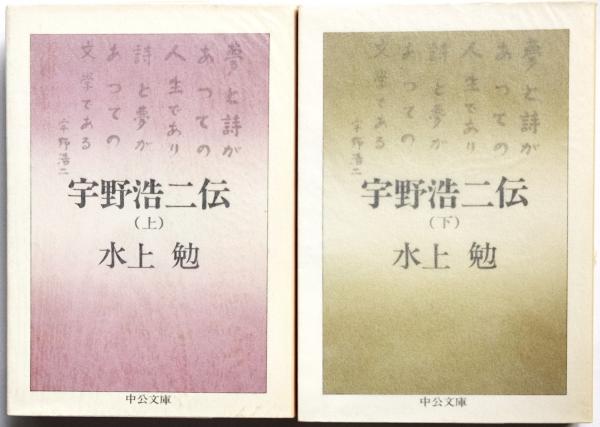 夢と詩が
あつての
人生であり
詩と夢が
あつての
文学である
宇野浩二
宇野浩二伝
(上)
水上 勉
中公文庫
夢と詩が
あつての
人生であり
詩と夢が
あつての
文学である
宇野浩二
宇野浩二伝
(下)
水上 勉
中公文庫